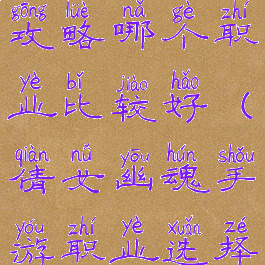 gōng lüè nǎ gè zhí
攻略哪个职
yè bǐ jiào hǎo
业比较好（
qiàn nǚ yōu hún shǒu
倩女幽魂手
yóu zhí yè xuǎn zé
游职业选择